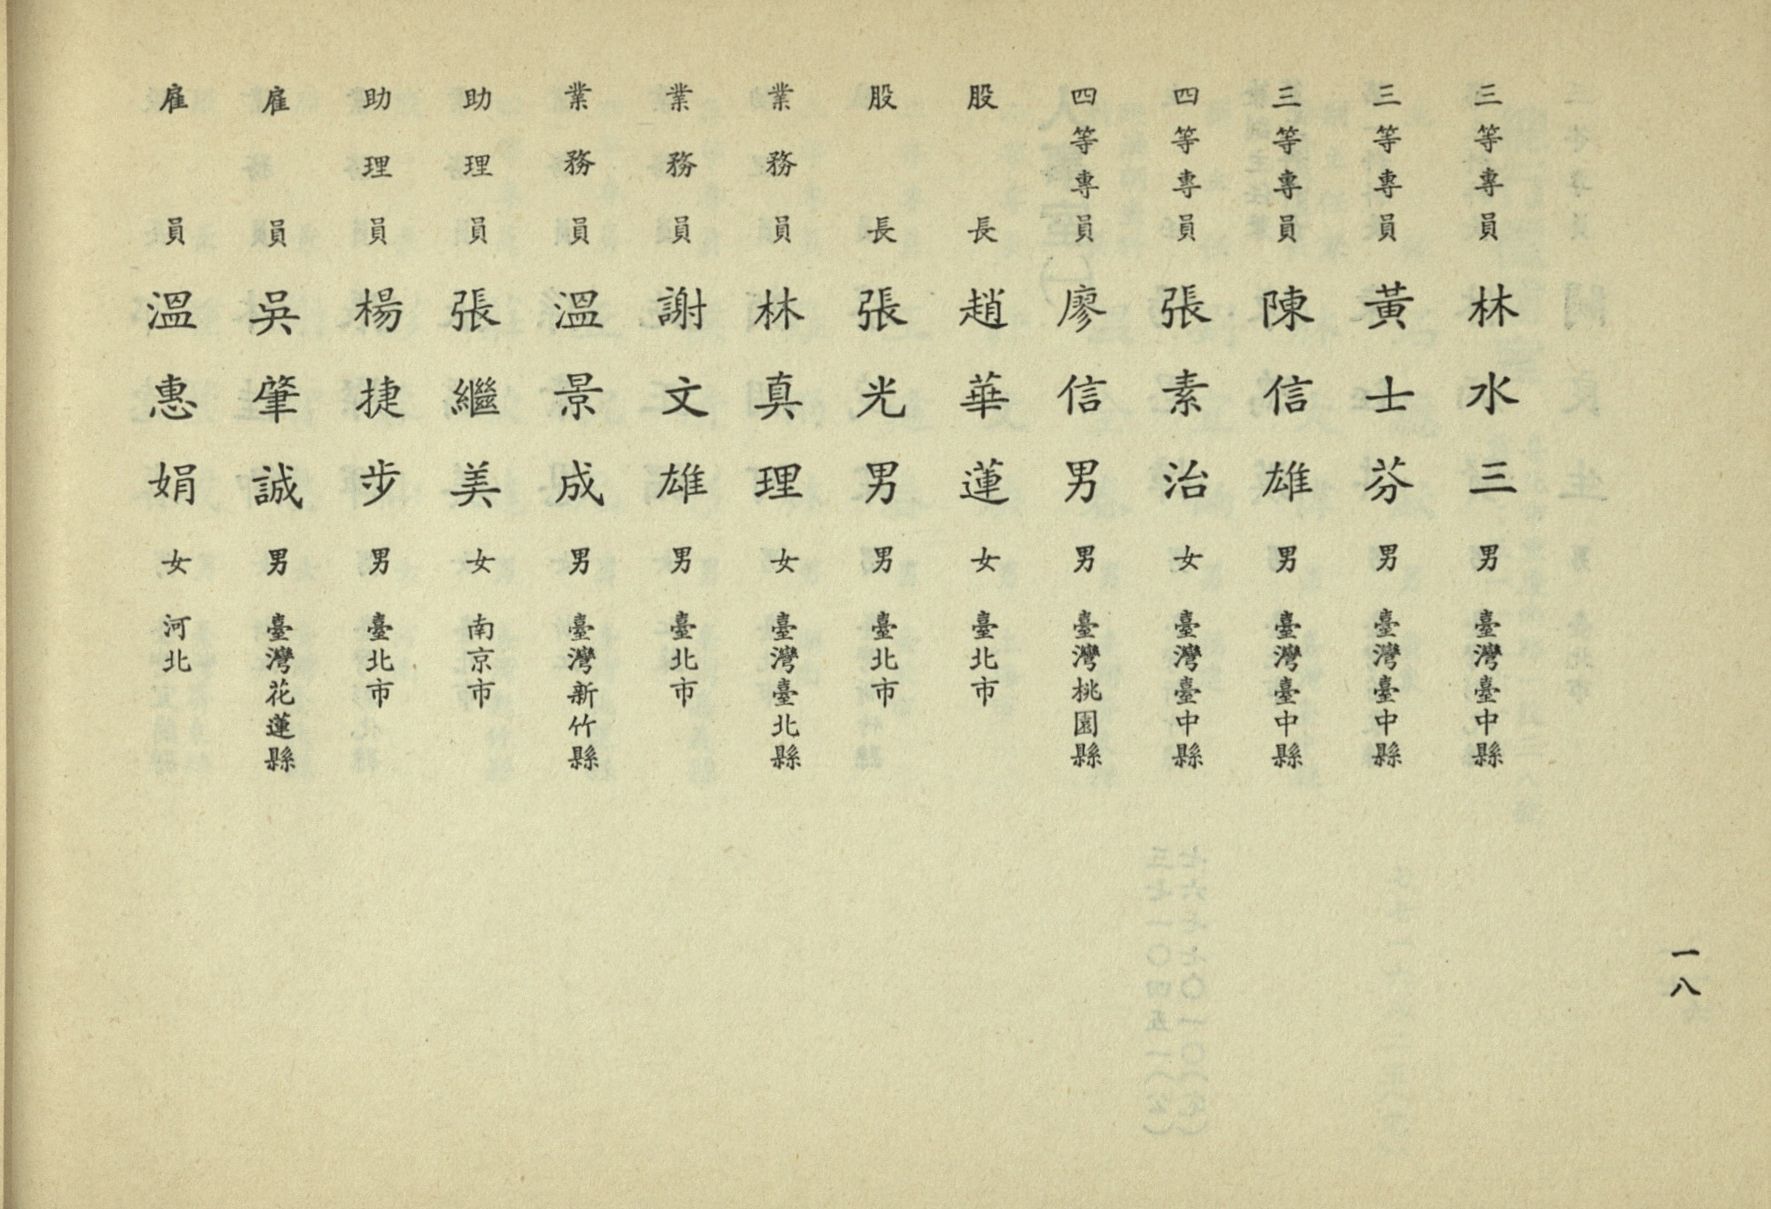 三等專員 林水三 男 臺灣臺中縣
三等專員 黃士芬 男 臺灣臺中縣
三等專員 陳信雄 男 臺灣臺中縣
四等專員 張素治 女 臺灣臺中縣
四等專員 廖信男 男 臺灣桃園縣
股長 趙華蓮 女 臺北市
股長 張光男 男 臺北市
業務員 林真理 女 臺灣臺北縣
業務員 謝文雄 男 臺北市
業務員 溫景成 男 臺灣新竹縣
助理員 張繼美 女 南京市
助理員 楊捷步 男 臺北市
雇員 吳肇誠 男 臺灣花蓮縣
雇員 溫惠娟 女 河北
一八